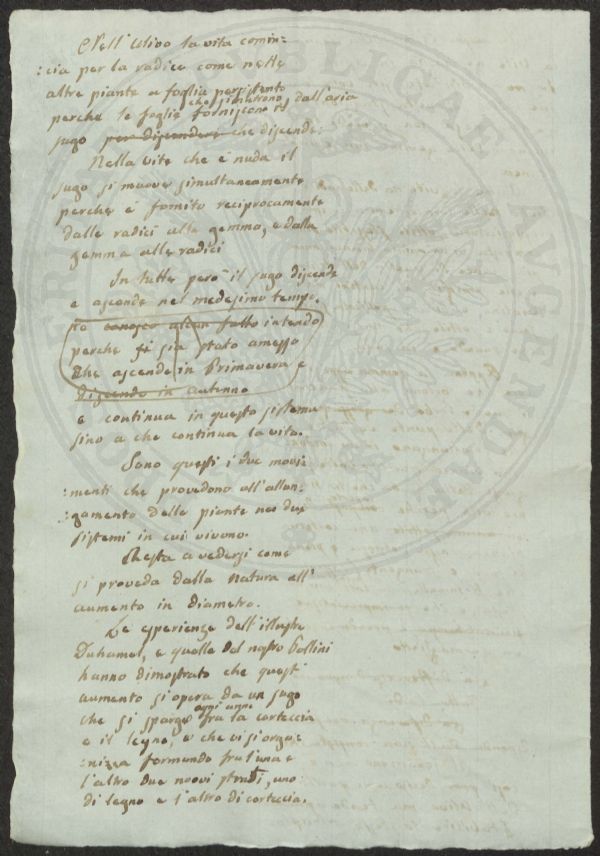 Nell'Ulivo la vita comin=
=cia per la radice come nelle
altre piante a foglia persistente
perche le foglie che si nutrono dall'aria
forniscono il
sugo per discendere che discende.
Nella vite che è nuda il
sugo si muove simultaneamente
perche è fornito reciprocamente
dalle radici alla gemma, e dalla
gemma alle radici
In tutte però il sugo discende
e ascende nel medesimo tempo.
conosco alcun fatto intendo
perche si sia stato amesso
che ascende in Primavera e
discende in autunno
e continua in questo sistema
sino a che continua la vita.
Sono questi i due movi=
=menti che provedono all'allun=
=gamento delle piante nei due
sistemi in cui vivono.
Resta a vedersi come
si proveda dalla Natura all'
aumento in diametro.
Le esperienze dell'illustre
Duhamel, e quelle del nostro Pollini
hanno dimostrato che questi
aumento si opera da un sugo
che si sparge ogni anno fra la corteccia
e il legno, e che vi si orga=
=nizza formando fra l'una e
l'altro due nuovi strati, uno
di legno e l'altro di corteccia.